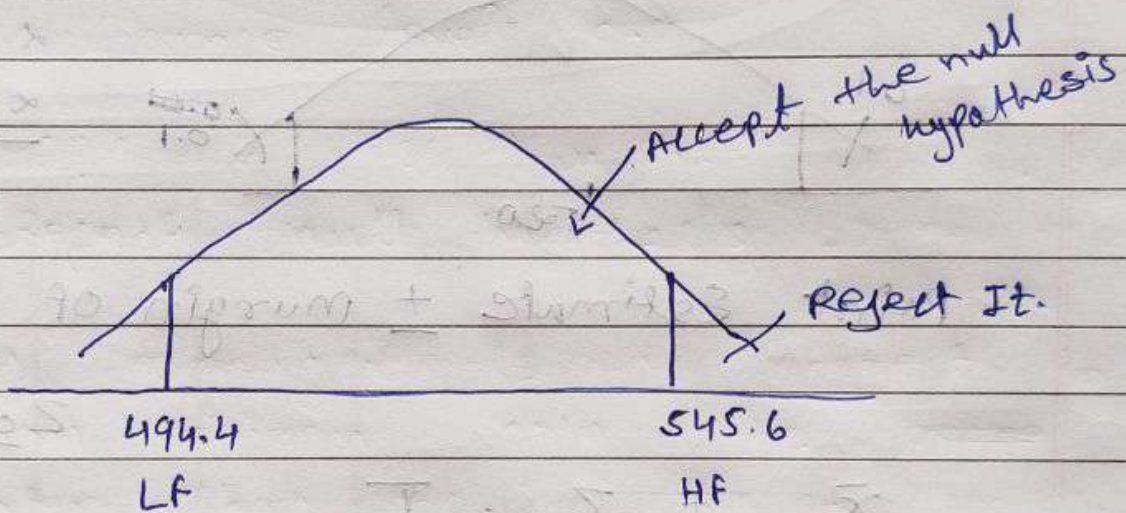 Accept the null
hypothesis
Reject It.
494.4
545.6
LF
HF